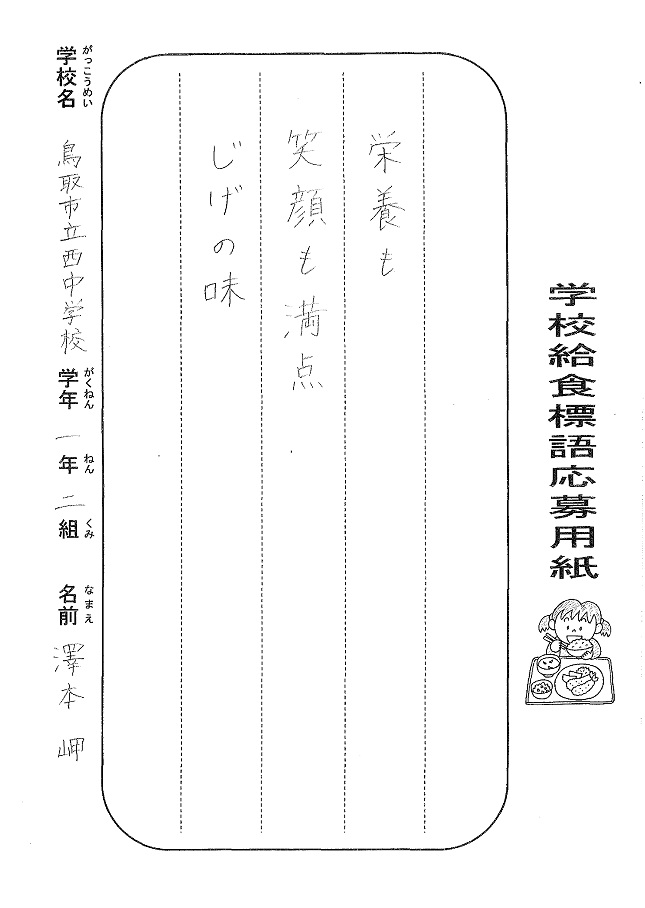 学校給食標語応募用紙
栄養も
笑顔も満点
じげの味
学校名 鳥取市立西中学校 学年 一年 二組 名前 澤本 岬
がっこうめい がくねん ねん くみ なまえ